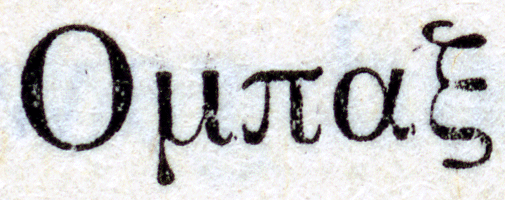 Ομπαξ